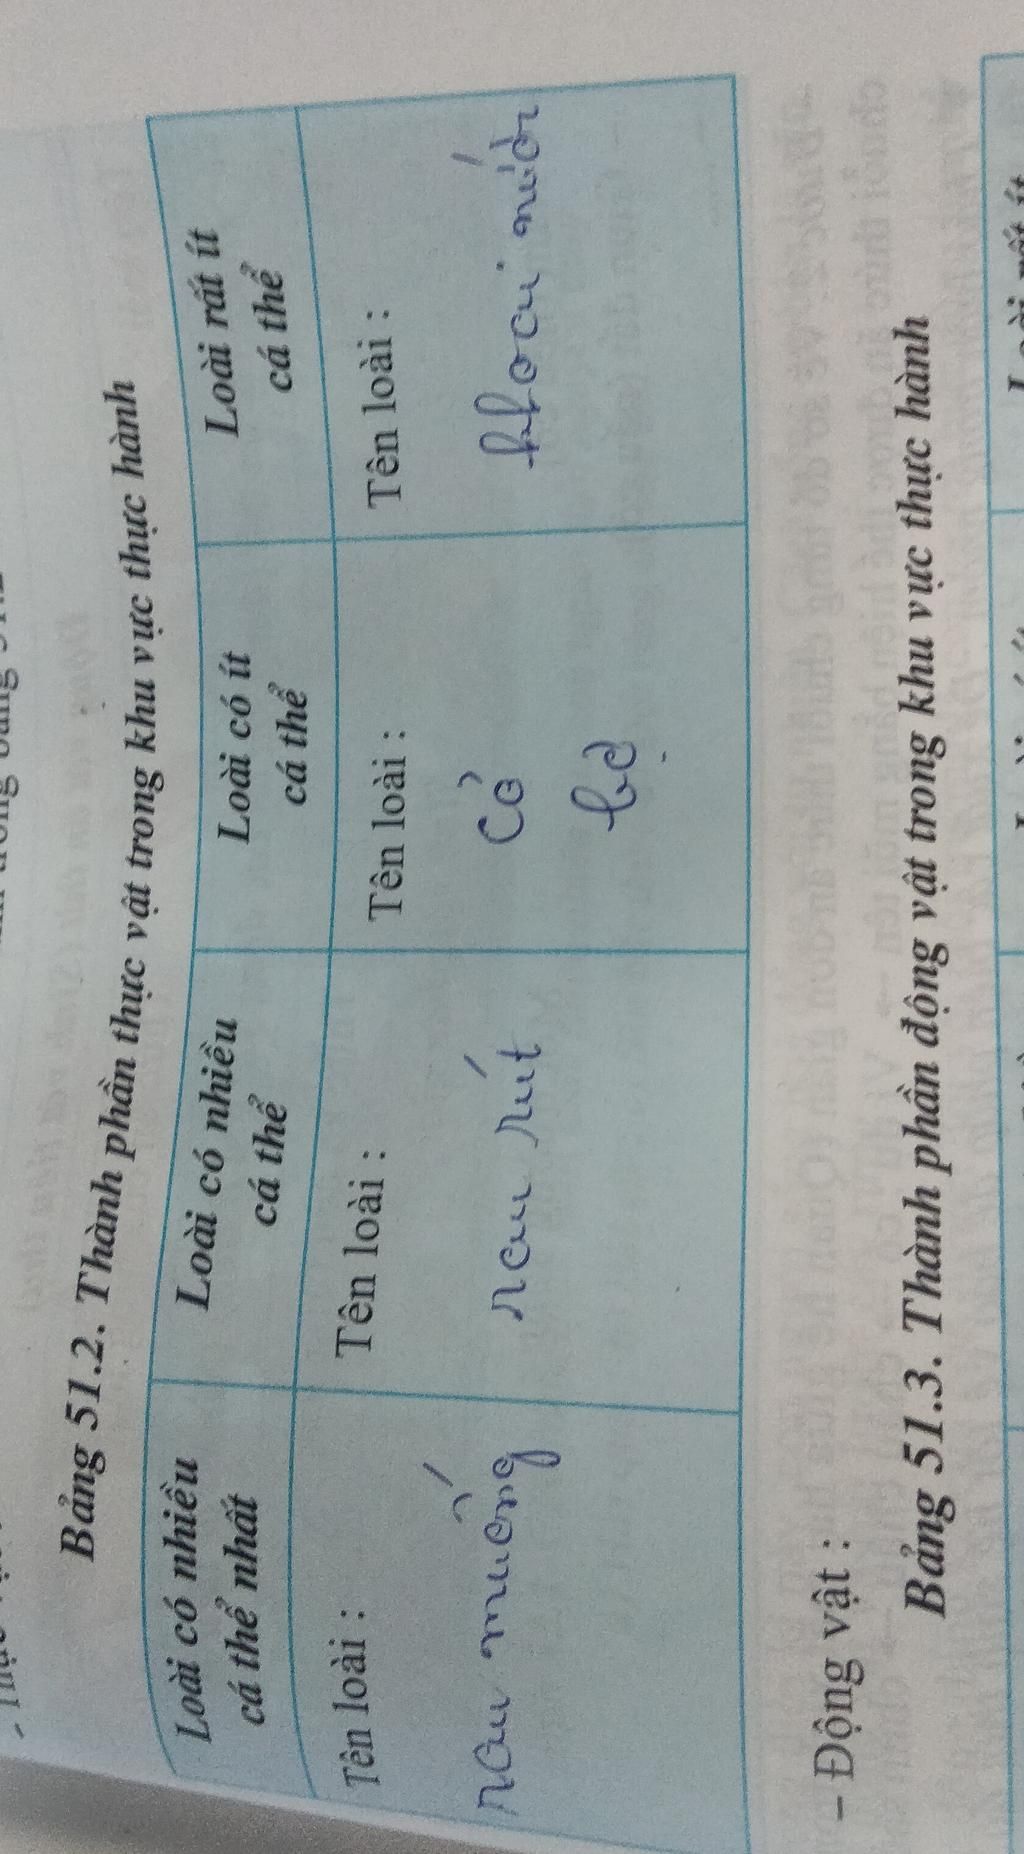 Bảng 51.2. Thành phần thực vật trong khu vực thực hành
Loài có nhiều
cá thể nhất
Loài có nhiều
cá thể
Loài có ít
cá thể
Loài rất ít
cá thể
Tên loài :
rau muống
Tên loài :
rau rút
Tên loài :
cỏ
bợ
Tên loài :
khoai nước
– Động vật :
Bảng 51.3. Thành phần động vật trong khu vực thực hành
Loài rất ít